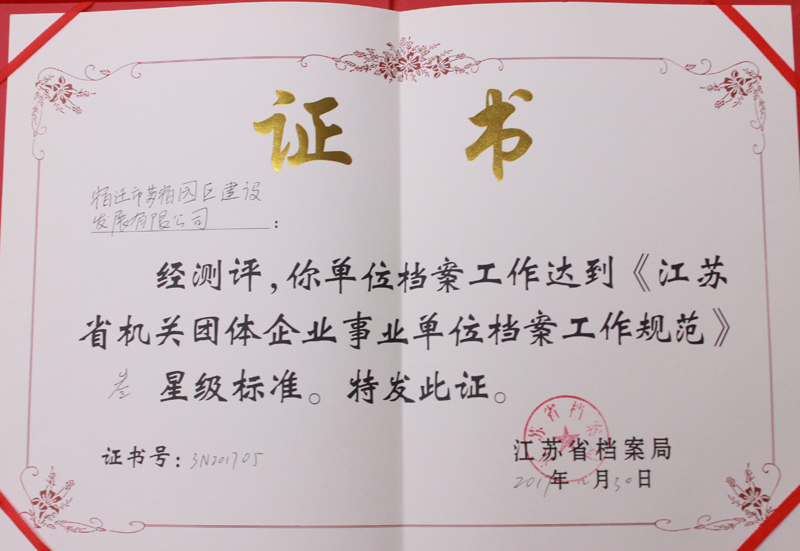 证书
宿迁市苏宿园区建设
发展有限公司：
经测评，你单位档案工作达到《江苏
省机关团体企业事业单位档案工作规范》
叁星级标准。特发此证。
证书号：3N201705
江苏省档案局
2017年 月30日